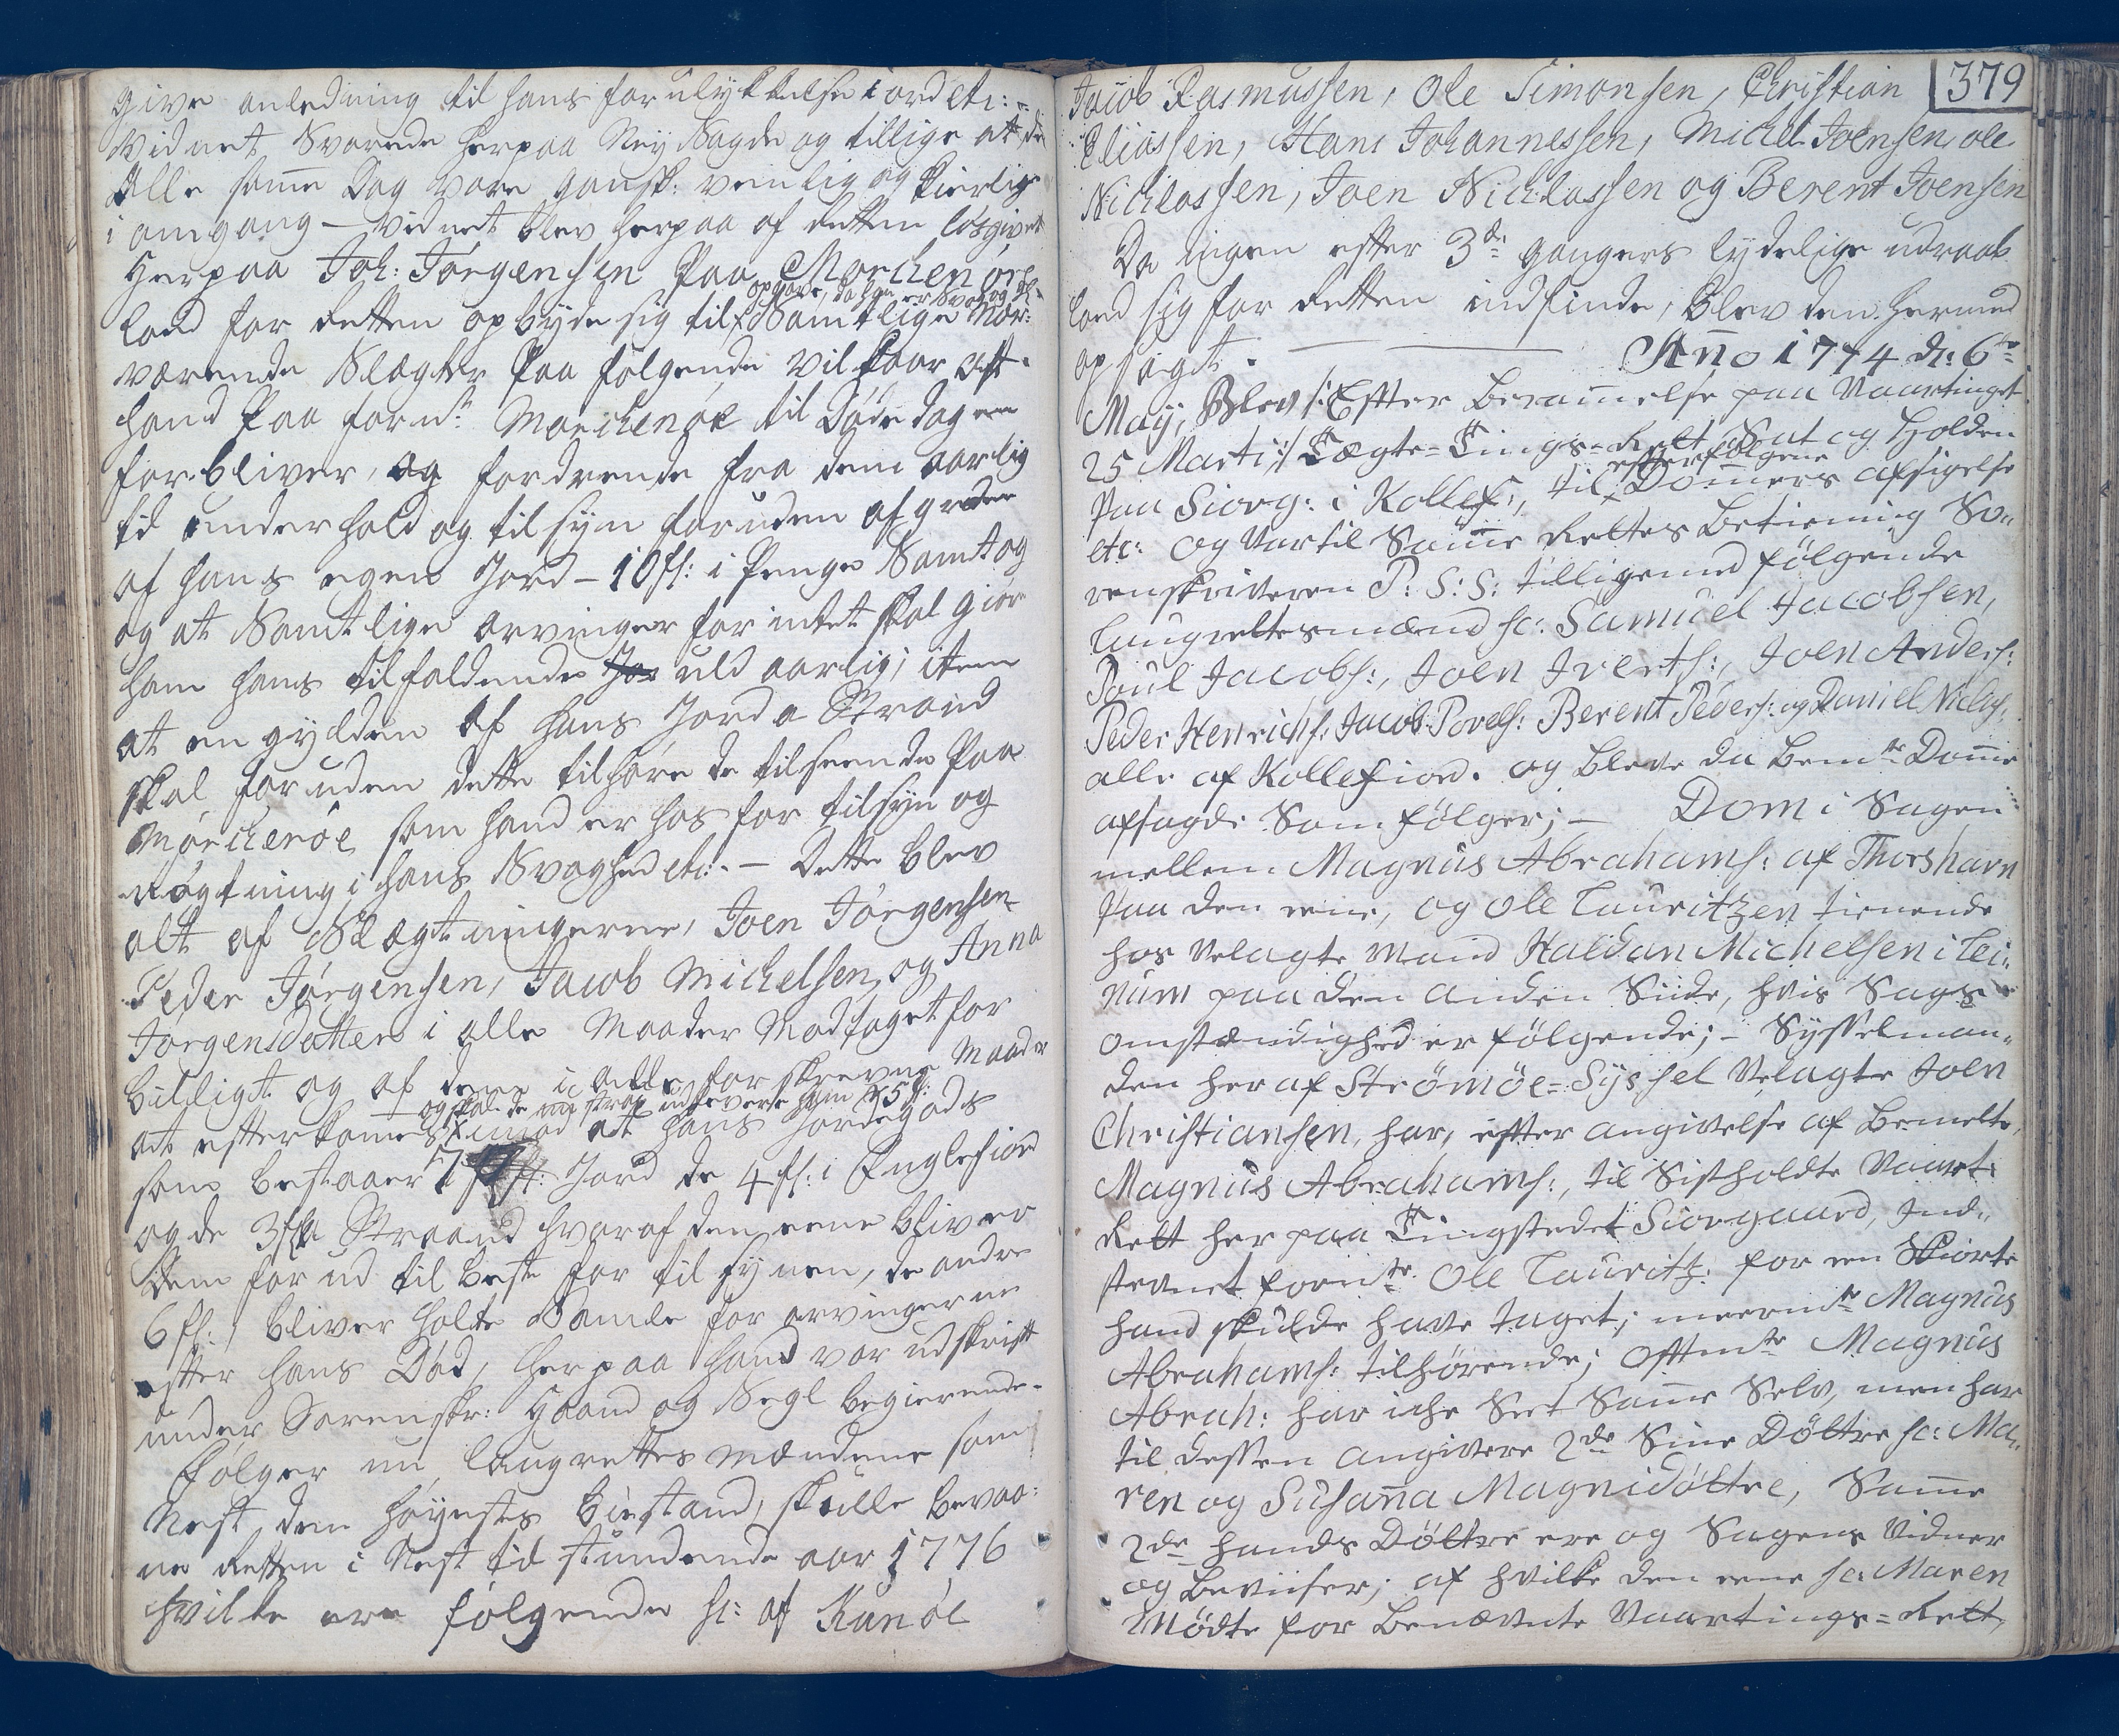 give anledning til hans forulykkelse i ord etc:
Vidnet Svarede herpaa Ney Sagde og tillige at de
Alle samme Dag vare gansk: venlig og kierlig
i omgang – Vidnet blev herpaa af Retten løsgivet
Herpaa Joh: Jørgensen paa Morchenøre
lod for Retten opbyde sig til Samtlige nær:
værende Slægter paa følgende Vilkaar at
hand paa forn: Morchenøre til Døde dagen
forbliver, og fordrende fra dem aarlig
til underhold og tilsyn foruden afgrøden
af hans egen Jord – 10 fl: i Penge Samt og
og at Samtlige arvinger for intet skal giøre
ham hans tilfaldende uld aarlig; item
at en gylden af hans Jord a Strand
skal foruden dette tilhøre de tilseende paa
Mørchenøre som hand er hos for tilsyn og
Røgtning i hans Svaghed etc: – Dette blev
alt af Slægtningerne, Joen Jørgensen
Peder Jørgensen, Jacob Michelsen og Anna
Jørgensdatter i alle Maader Modtaget for
billigt og af dem i alle forskrevne Maader
og skal de nu strax udlevere ham 5 fl:
at efterkomes imod at hans Jordegods
som bestaaer 7 Jord de 4 fl: i Englefiord
og de 3 fl: a Strand hvoraf den eene bliver
dem forud til beste for tilsynen, de andre
6 fl: bliver holte Samle for arvingerne
efter hans Død, herpaa hand var udskrift
under Sorenskr: Haand og Segl begierende.
Følger nu laugrettesmændene som
Nest den høyestes biestand, skulle bevaa:
ne Retten i Nest tilstundende aar 1776
hvilke ere følgende sc: af Kunøe
379
Jacob Rasmussen, Ole Simonsen, Christian
Eliassen, Hans Johannessen, Michel Joensen ole
Nichlassen, Joen Nichlassen og Berent Joensen
Da ingen efter 3de gangers lydelige udraab
lood sig for Retten indfinde, blev den hermed
opsagt.
Anno 1774 d: 6te
Maij, Blev /: Efter Berammelse paa Vaartinget
25 Martij :/ Tægte-Tings-Ret Sat og Holden
efterfølgene
paa Siovg: i Kollef:, til Dommers afsigelse
etc: og Var til Samme Rettes Betiening So-
renskriveren P: S: S: tilligemed følgende
Laugrettesmænd sc: Samuel Jacobsen,
Poul Jacobs:, Joen Iverts:, Joen Anders:
Peder Henrichs: Jacob Povels: Berent Peders: og Daniel Niclas:
alle af Kollefiord. og bleve da bemte Domme
afsagde Som følger; – Dom i Sagen
mellem Magnus Abrahams: af Thorshavn
paa den eene, og Ole Lauritzen tienende
hos Velagte Mand Haldan Michelsen i Lei:
num paa den anden Siide, hvis Sags
omstændighed er følgende; – Sysselman-
den her af Strømøe-Syssel Velagte Joen
Christiansen, har, efter angivelse af bemelte
Magnus Abrahams:, til Sistholdte Vaart:
Rett her paa Tingstedet Siovgaard, Ind-
stevnet fornte Ole Lauritz: for en Skiorte
hand skulde have taget; meermte Magnus
Abrahams: tilhørende; Offtmte Magnus
Abrah: har iche Seet Samme Selv, men har
til dessen angivere 2de Sine Døttre sc: Ma-
ren og Susanna Magnidøttre, Samme
2de hands Døttre ere og Sagens Vidner
og beviiser; af hvilke den eene sc: Maren
Mødte for benævnte Vaartings-Rett,